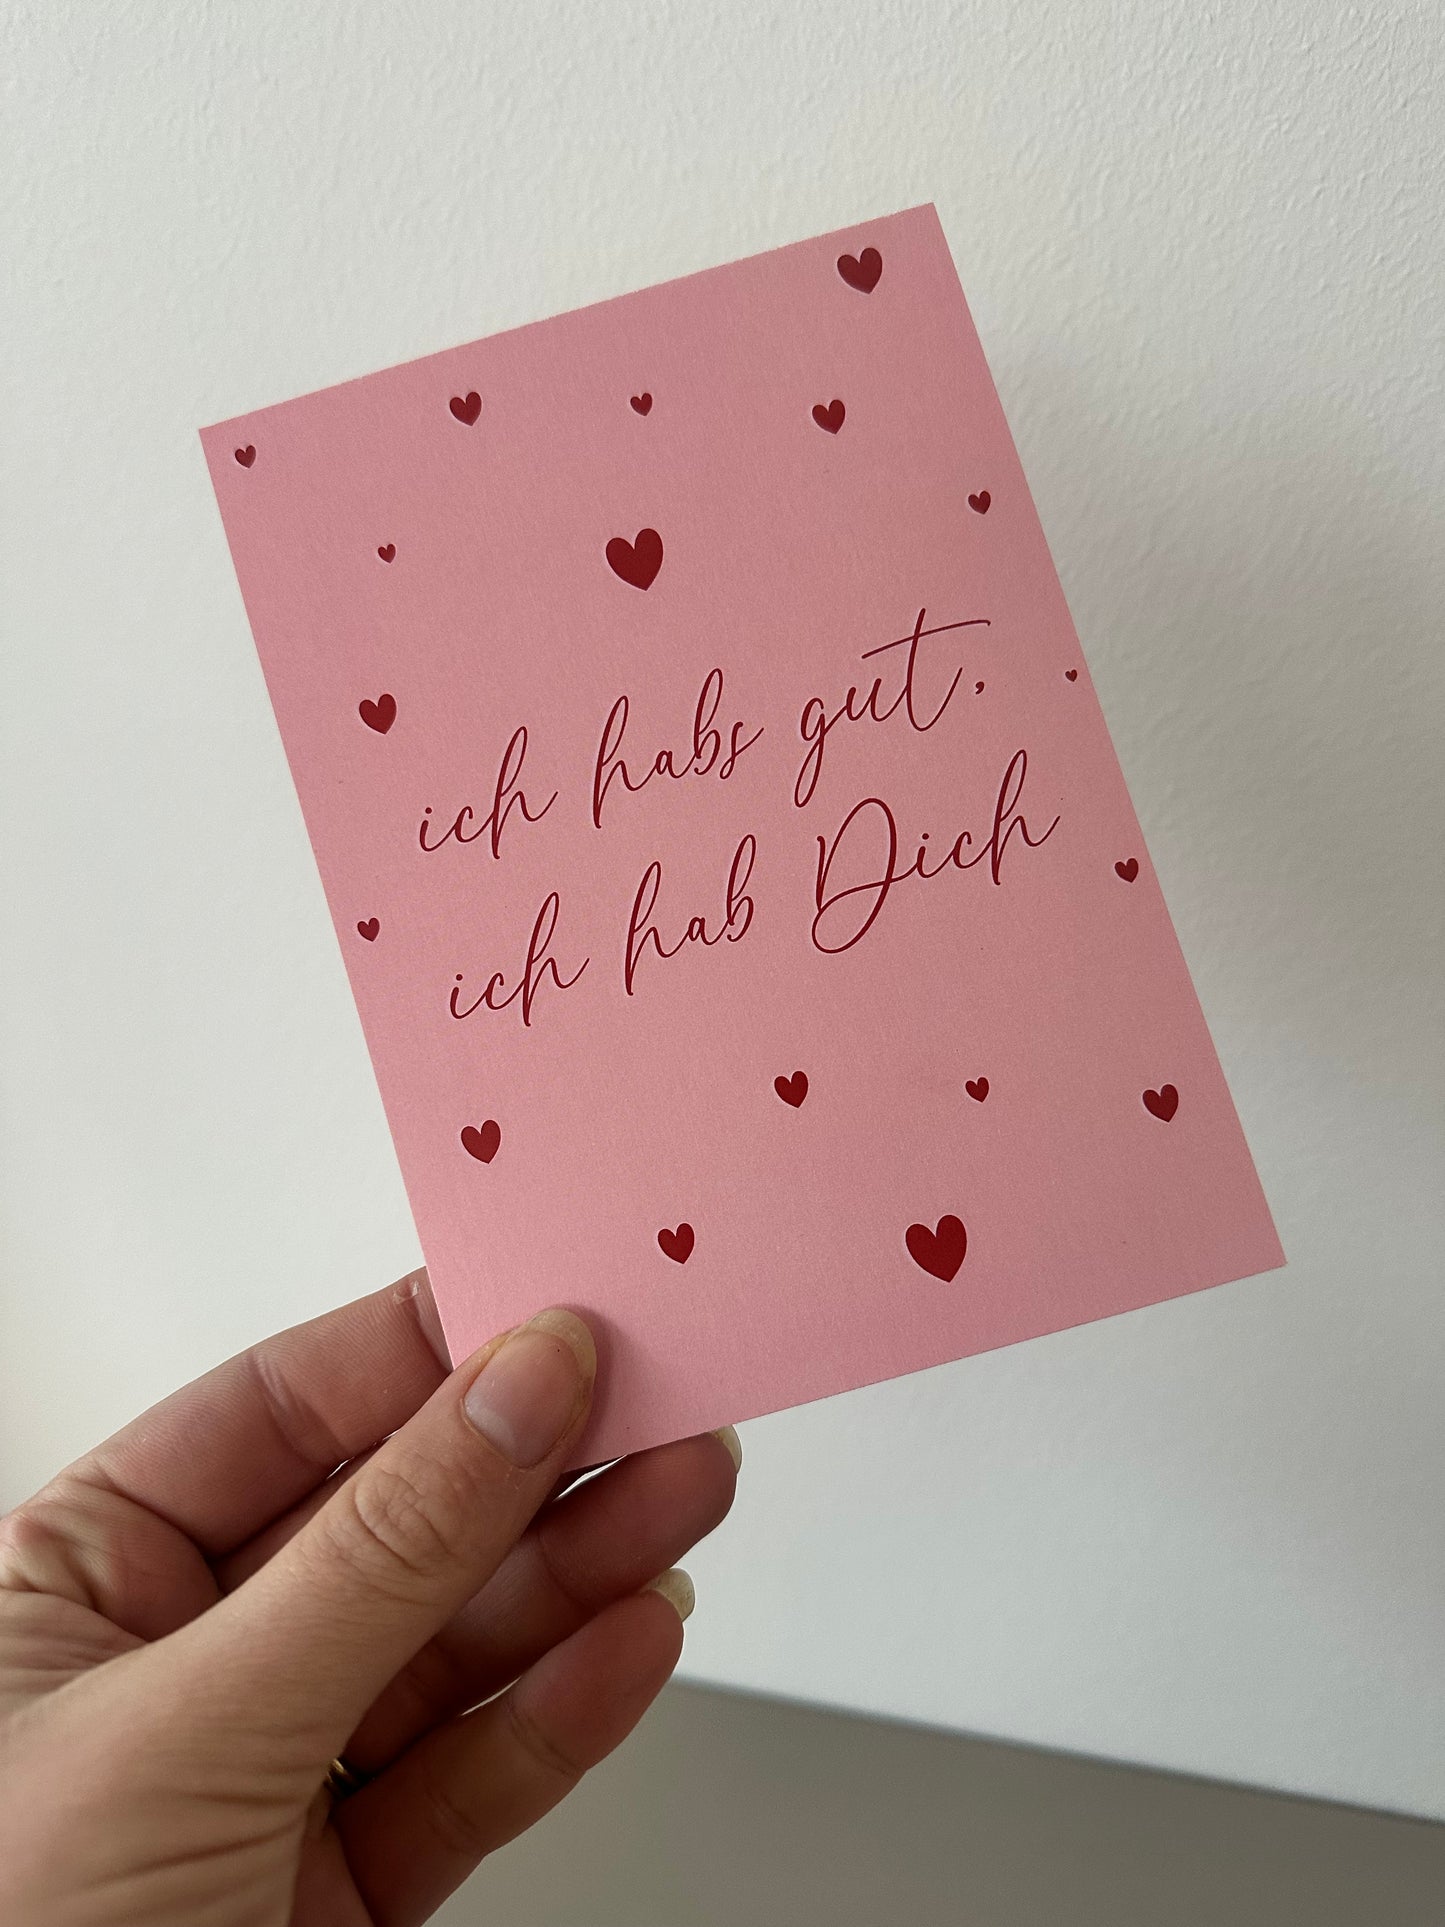 ich habs gut,
ich hab Dich